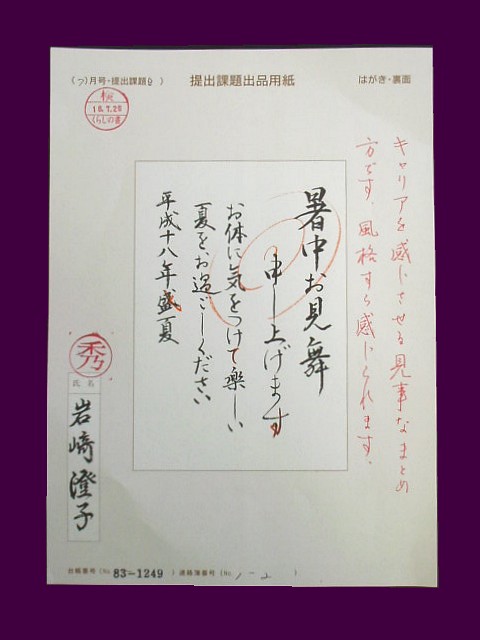 (7)月号・提出課題9)
提出課題出品用紙
はがき・裏面
18.7.26
くらしの書
キャリアを感じさせる見事なまとめ
方です。風格すら感じられます。
暑中お見舞
申し上げます
お体に気をつけて楽しい
夏をお過ごしください
平成十八年盛夏
秀
氏名
岩﨑澄子
台帳番号(No.83-1249)連絡簿番号(No.1-2)